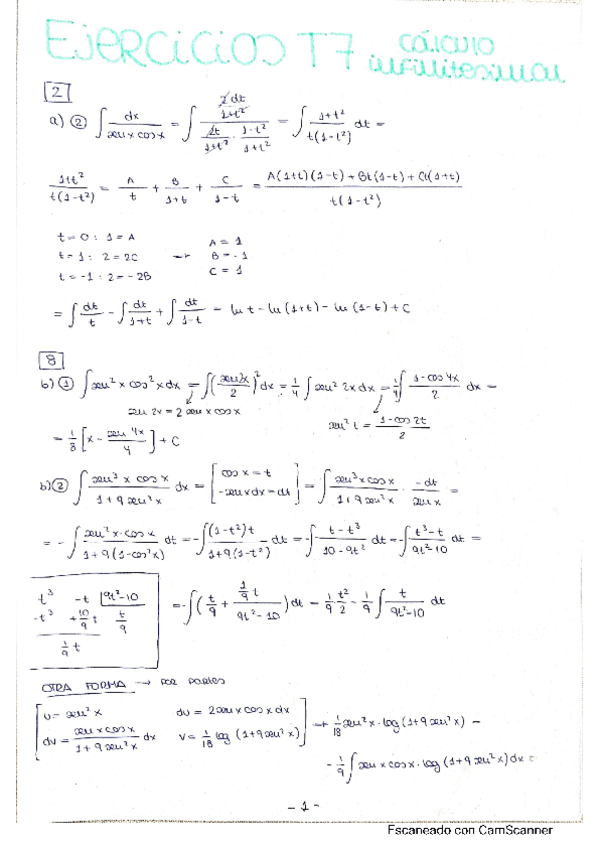 Ejercicios T7 cálculo infinitesimal
2
a) ② ∫ dx / (sen x cos x) = ∫ (2dt/(1+t²)) / (2t/(1+t²) · (1-t²)/(1+t²)) = ∫ (1+t²)/(t(1-t²)) dt =
(1+t²)/(t(1-t²)) = A/t + B/(1+t) + C/(1-t) = (A(1+t)(1-t) + Bt(1-t) + Ct(1+t))/(t(1-t²))
t=0 : 1=A
t=1 : 2=2C → A=1 B=-1 C=1
t=-1 : 2=-2B
= ∫ dt/t - ∫ dt/(1+t) + ∫ dt/(1-t) = ln t - ln(1+t) - ln(1-t) + C
8
b) ① ∫ sen²x cos²x dx = ∫ (sen 2x/2)² dx = 1/4 ∫ sen² 2x dx = 1/4 ∫ (1-cos 4x)/2 dx =
sen 2x = 2 sen x cos x
sen² t = (1-cos 2t)/2
= 1/8 [x - sen 4x/4] + C
b) ② ∫ (sen³x cos x)/(1+9 sen²x) dx = [cos x = t
-sen x dx = dt] = ∫ (sen³x cos x)/(1+9 sen²x) · -dt/sen x =
= -∫ (sen²x·cos x)/(1+9(1-cos²x)) dt = -∫ ((1-t²)t)/(1+9(1-t²)) dt = -∫ (t-t³)/(10-9t²) dt = -∫ (t³-t)/(9t²-10) dt =
t³ -t |9t²-10
-t³ +10/9 t t/9
1/9 t
= -∫ (t/9 + (1/9 t)/(9t²-10)) dt = -1/9 t²/2 - 1/9 ∫ t/(9t²-10) dt
OTRA FORMA → por partes
[u = sen²x du = 2 sen x cos x dx
dv = (sen x cos x)/(1+9 sen²x) dx v = 1/18 log (1+9 sen²x)] → 1/18 sen²x·log (1+9 sen²x) -
- 1/9 ∫ sen x cos x · log (1+9 sen²x) dx =
- 1 -
Escaneado con CamScanner